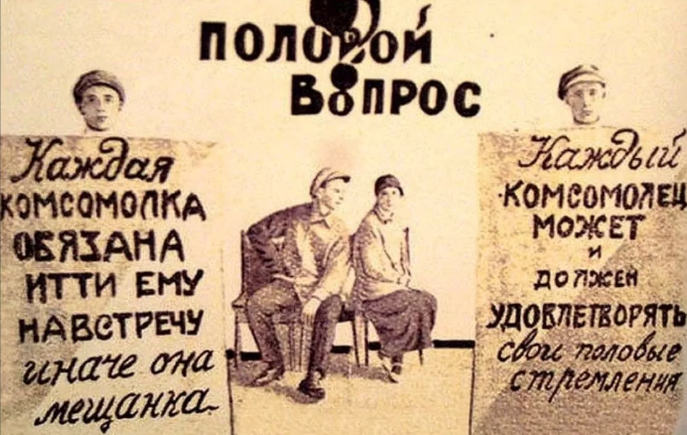 ПОЛОВОЙ
ВОПРОС
Каждая
КОМСОМОЛКА
ОБЯЗАНА
ИТТИ ЕМУ
НАВСТРЕЧУ
иначе она
мещанка.
Каждый
КОМСОМОЛЕЦ
МОЖЕТ
И
ДОЛЖЕН
УДОВЛЕТВОРЯТЬ
свои половые
стремления